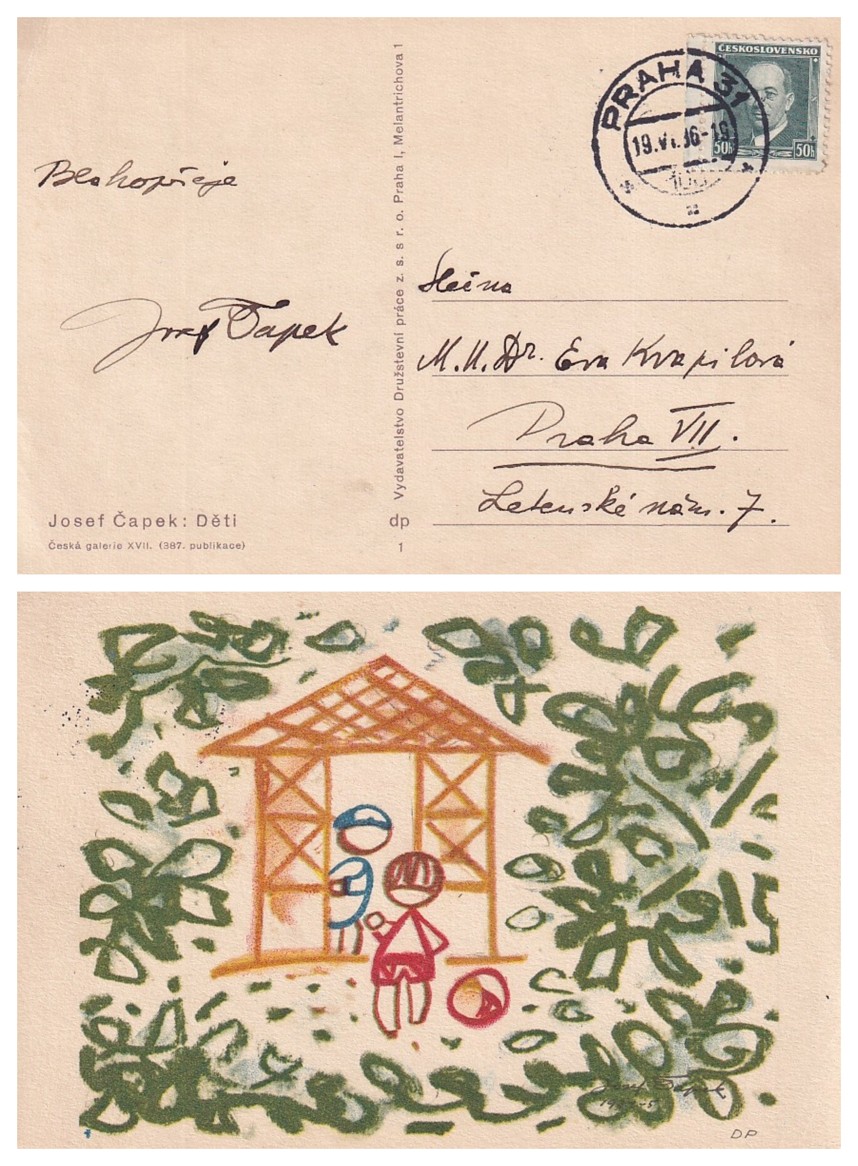 ČESKOSLOVENSKO
50h 50h
PRAHA 31
19.VI.36-19
Blahopřeje
Josef Čapek
Slečna
M.U.Dr. Eva Kvapilová
Praha VII.
Letenské nám. 7.
Vydavatelstvo Družstevní práce z. s. s r. o. Praha I, Melantrichova 1
Josef Čapek: Děti
Česká galerie XVII. (387. publikace)
dp
1
Josef Čapek
DP